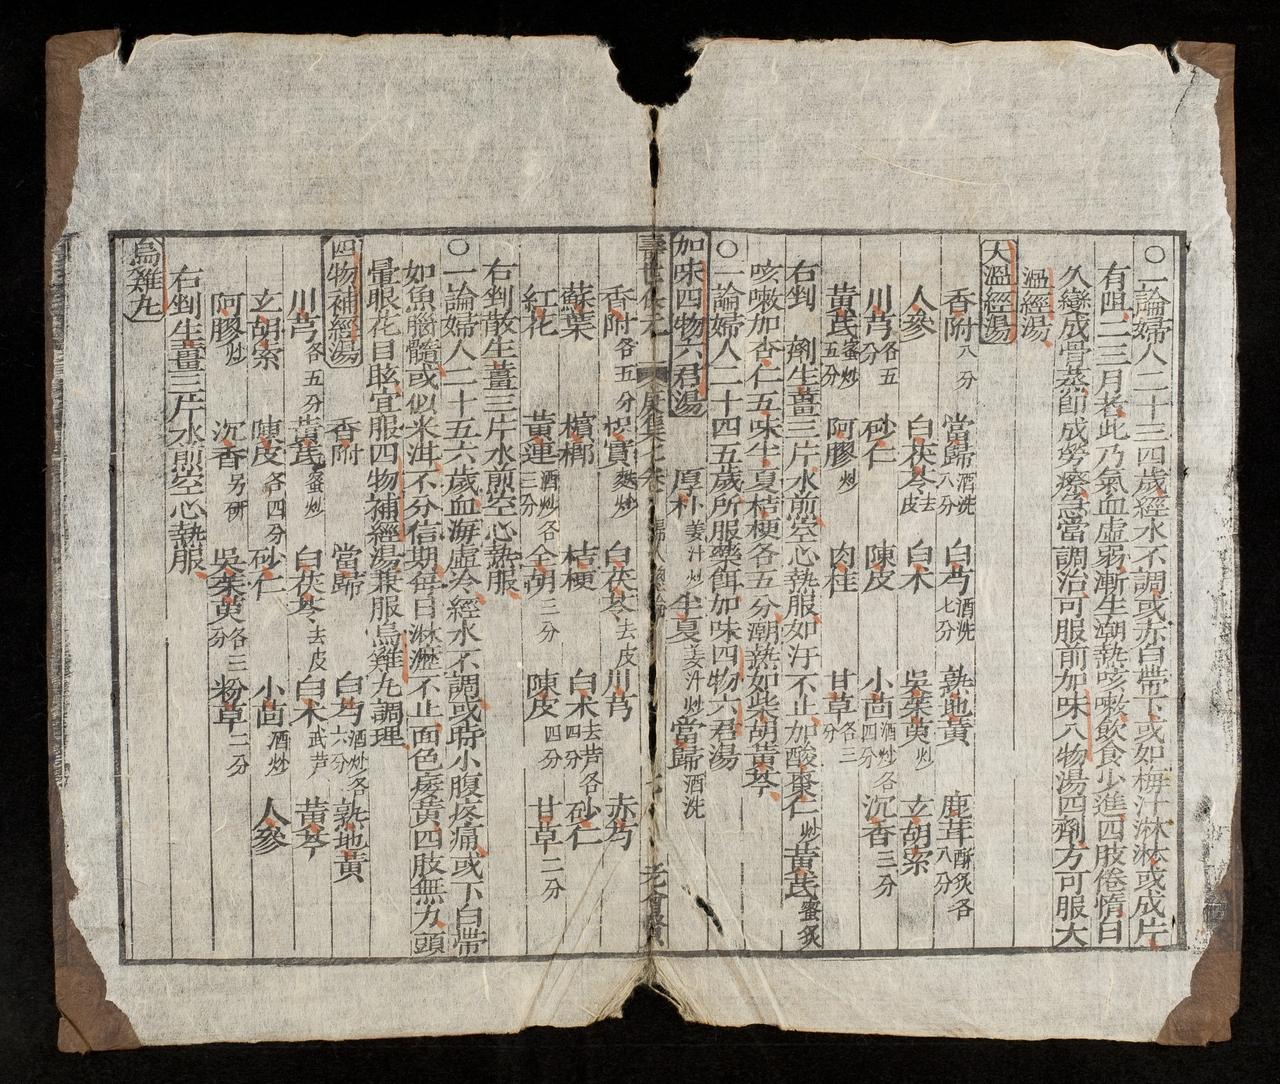 ○一論婦人二十三四歲經水不調或赤白帶下或如梅汁淋淋或成片
有咀二三月者此乃氣血虛弱漸生潮熱咳嗽飲食少進四肢倦惰日
久變成骨蒸即成勞瘵急當調治可服前加味八物湯四劑方可服大
溫經湯
大溫經湯
香附八分 當歸酒洗八分 白芍酒洗七分 熟地黃 鹿茸酥炙各八分
人參 白茯苓去皮 白朮 吳茱萸炒 玄胡索
川芎各五分 砂仁 陳皮 小茴酒炒各四分 沉香三分
黃芪蜜炒五分 阿膠炒 肉桂 甘草各三分
右剉 劑生薑三片水煎空心熱服如汗不止加酸棗仁炒黃芪蜜炙
咳嗽加杏仁五味半夏桔梗各五分潮熱如柴胡黃芩
○一論婦人二十四五歲所服藥餌加味四物六君湯
加味四物六君湯 厚朴姜汁炒 半夏姜汁炒 當歸酒洗
壽世保元 庚集七卷 婦人 七
香附各五分 枳實麩炒 白茯苓去皮 川芎 赤芍
蘇葉 檳榔 桔梗 白朮去苦各四分 砂仁
紅花 黃連酒炒各三分 全胡三分 陳皮四分 甘草二分
右剉散生薑三片水煎空心熱服
○一論婦人二十五六歲血海虛冷經水不調或時小腹疼痛或下白帶
如魚腦髓或似米泔不分信期每日淋瀝不止面色痿黃四肢無力頭
暈眼花目眩宜服四物補經湯兼服烏雞丸調理
四物補經湯 香附 當歸 白芍酒炒各六分 熟地黃
川芎各五分 黃芪蜜炒 白茯苓去皮 白朮 黃芩
玄胡索 陳皮各四分 砂仁 小茴酒炒 人參
阿膠炒 沉香另研 吳茱萸各三分 粉草二分
右剉生薑三片水煎空心熱服
烏雞丸